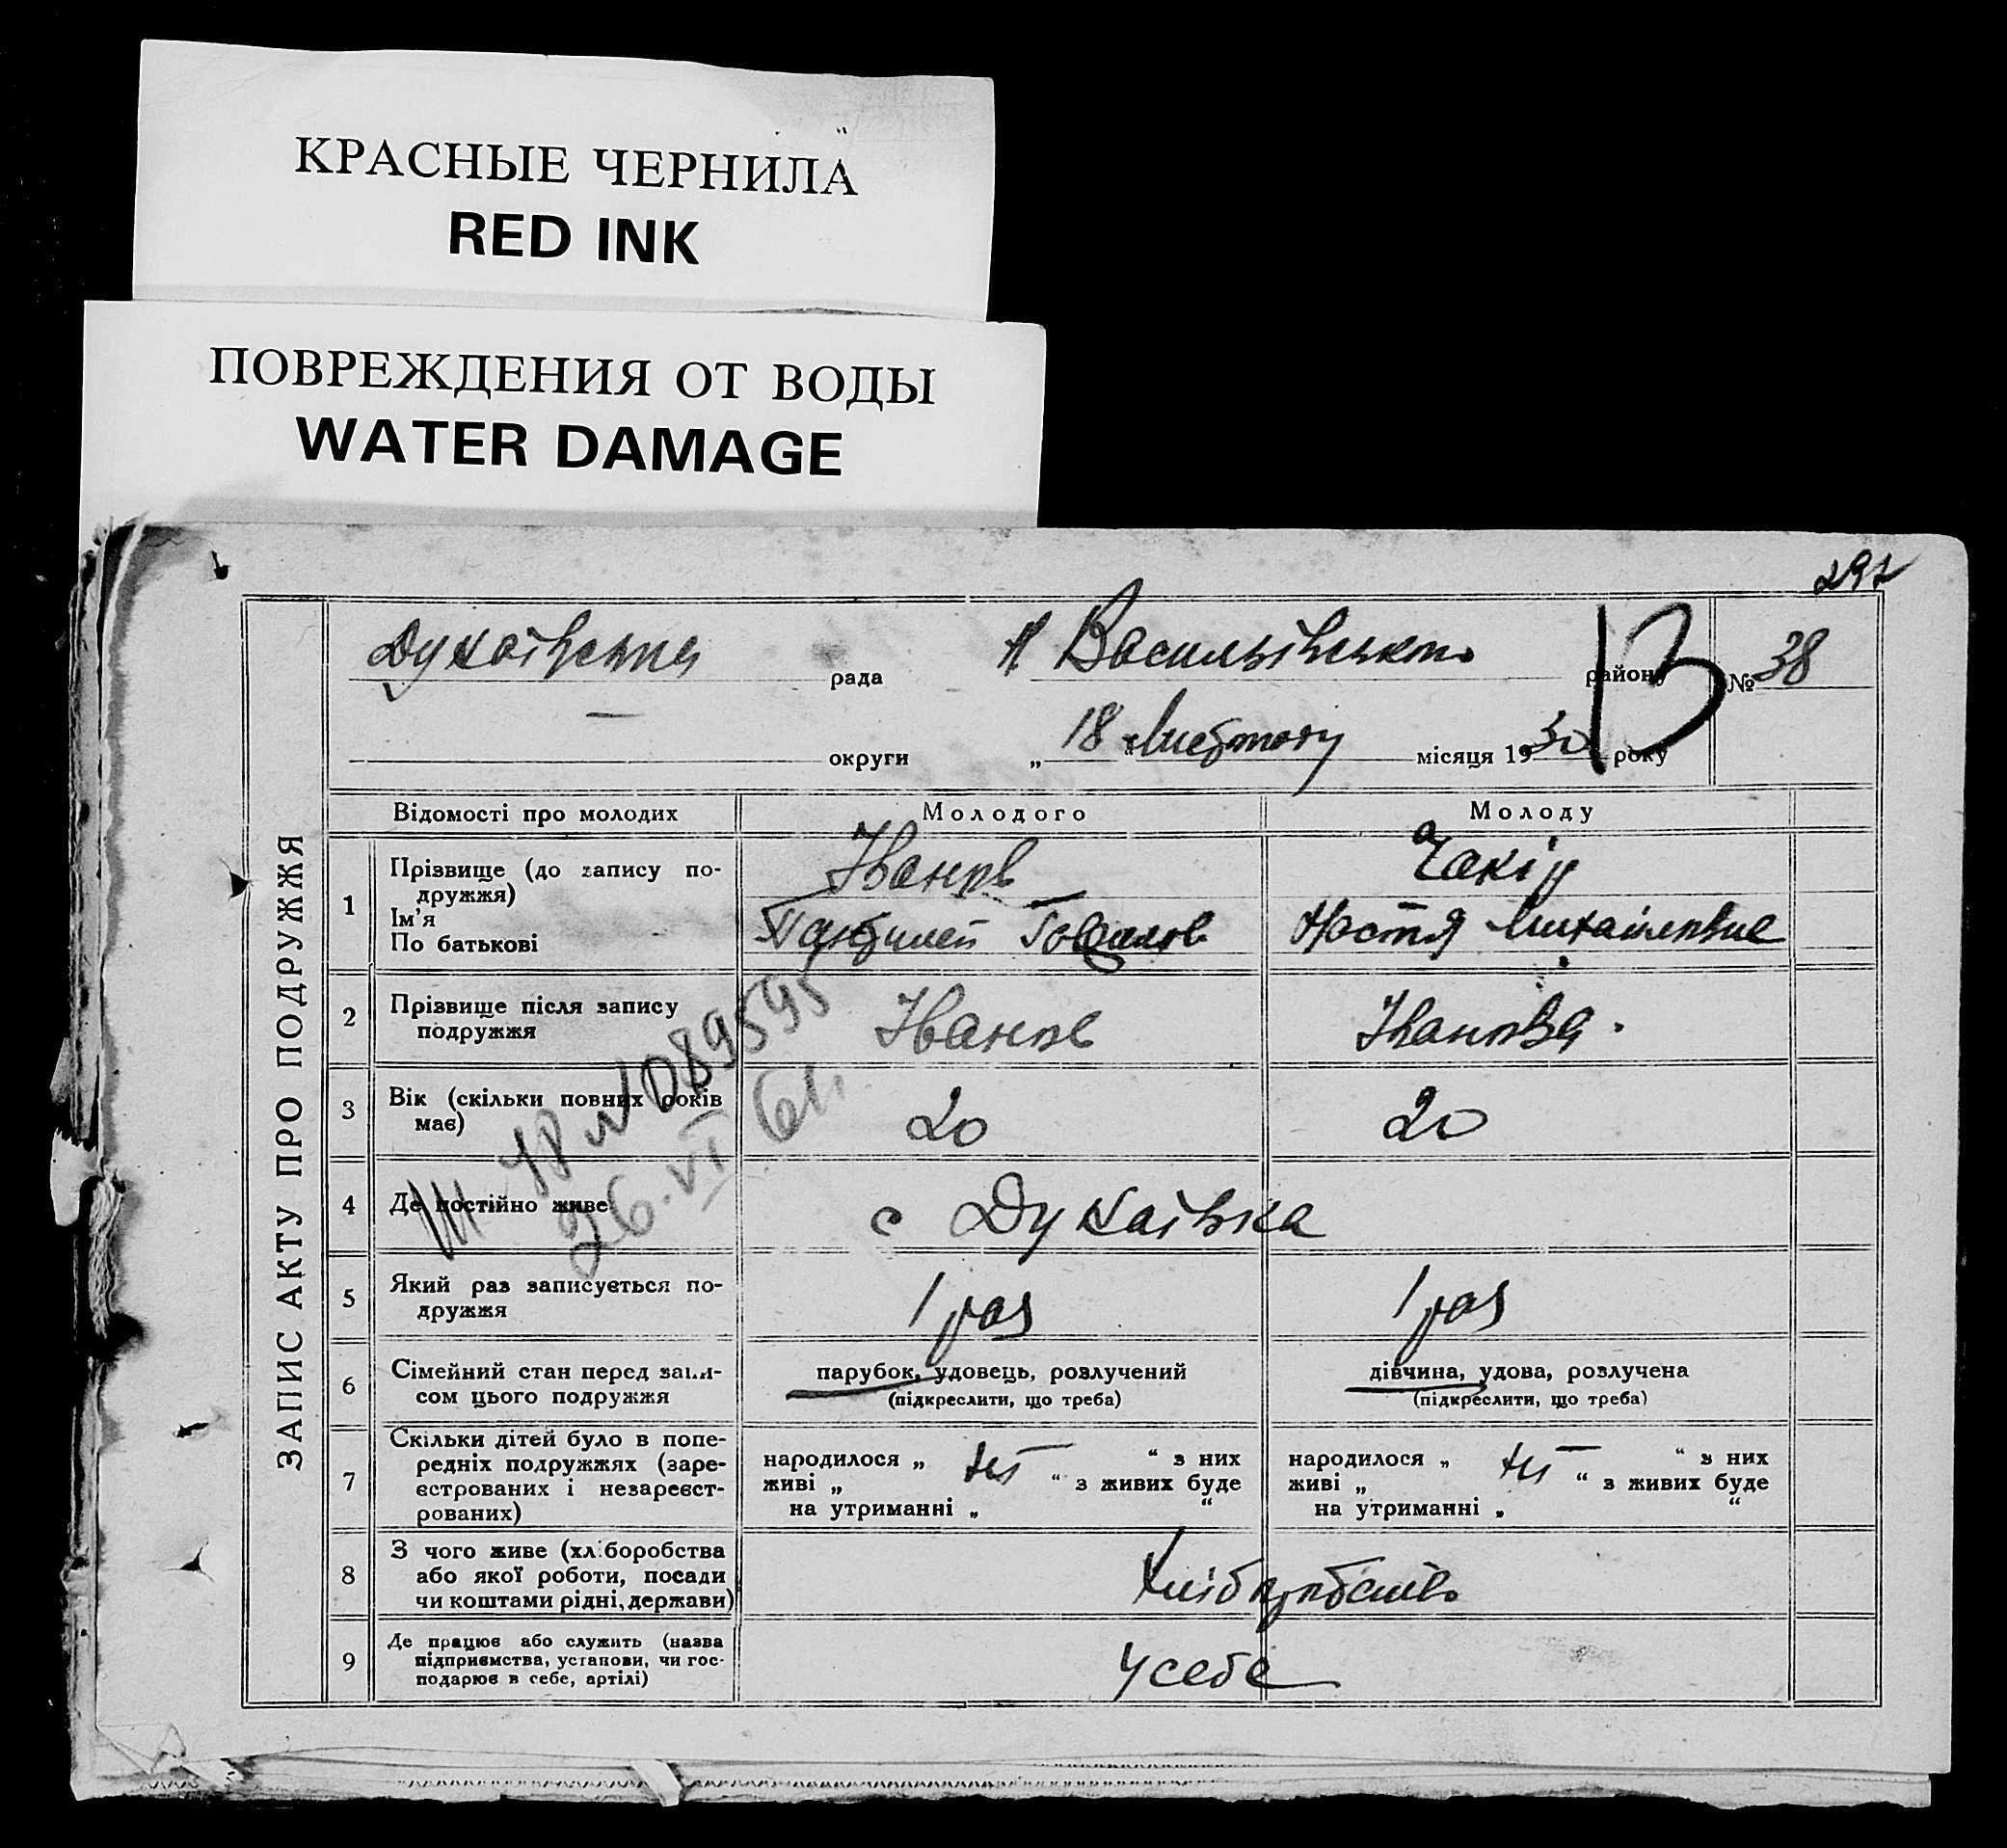 КРАСНЫЕ ЧЕРНИЛА
RED INK
ПОВРЕЖДЕНИЯ ОТ ВОДЫ
WATER DAMAGE
ЗАПИС АКТУ ПРО ПОДРУЖЖЯ
рада Н Васильївського району № 38
13
округи „ 18 “ Лютого місяця 1930 року
Відомості про молодих Молодого Молоду
1 Прізвище (до запису по-
дружжя) Іванов Чакір
Ім'я
По батькові Настя Михайловна
2 Прізвище після запису
подружжя Іванов Іванова
3 Вік (скільки повних років
має) 20 20
4 Де постійно живе с
№ 089595
26.VI
5 Який раз записується по-
дружжя 1 раз 1 раз
6 Сімейний стан перед запи-
сом цього подружжя
парубок, удовець, розлучений
(підкреслити, що треба)
дівчина, удова, розлучена
(підкреслити, що треба)
7 Скільки дітей було в попе-
редніх подружжях (заре-
єстрованих і незареєст-
рованих)
народилося „ “ з них
живі „ “ з живих буде
на утриманні „ “
народилося „ “ з них
живі „ “ з живих буде
на утриманні „ “
8 З чого живе (хліборобства
або якої роботи, посади
чи коштами рідні, держави)
Хліборобство
9 Де працює або служить (назва
підприємства, установи, чи гос-
подарює в себе, артілі)
У себе